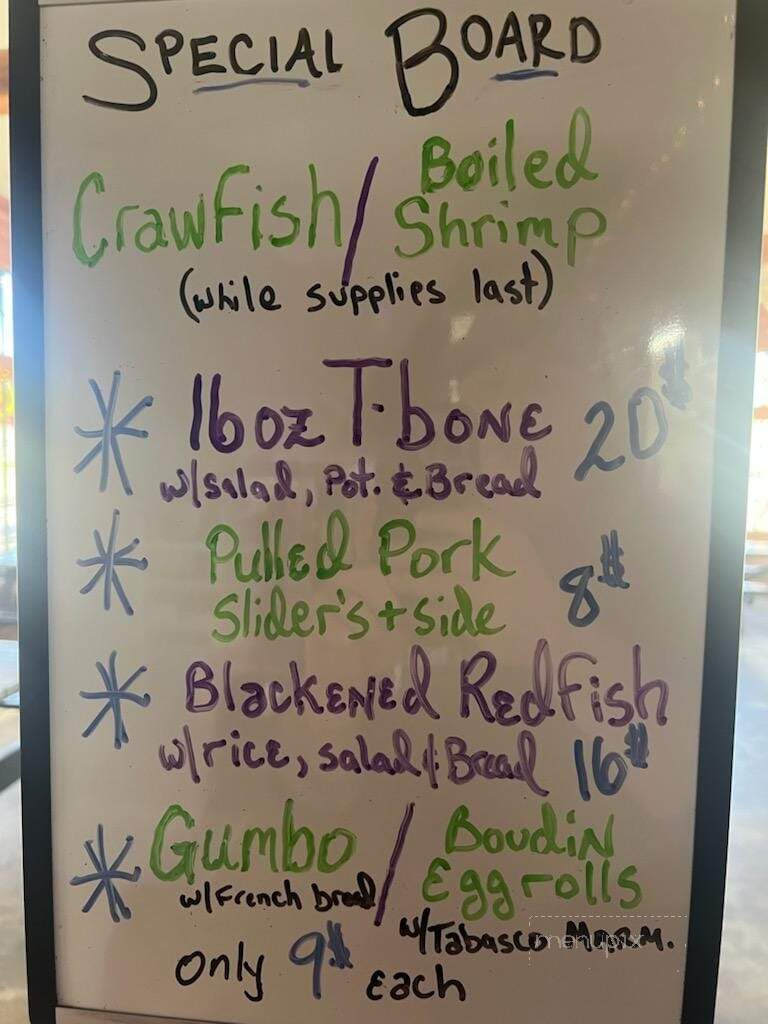 SPECIAL BOARD
Crawfish / Boiled Shrimp
(while supplies last)
16oz T-bone 20$
w/salad, Pot. & Bread
Pulled Pork
Slider's + side 8$
Blackened Redfish
w/rice, salad & Bread 16$
Gumbo / Boudin Eggrolls
w/French bread w/Tabasco
only 9$ each
menupix